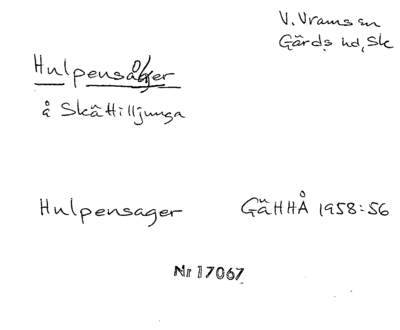 V. Vrams sn
Gärds hd, Sk
Hulpensåger
å Skättilljunga
Hulpensager GäHHÅ 1958:56
Nr 17067